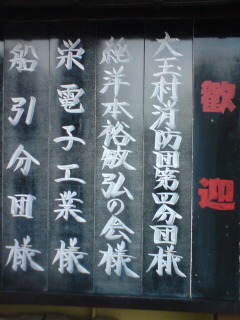 歓迎
大玉村消防団第四分団様
絶洋本裕敏弘の会様
栄電子工業様
船引分団様